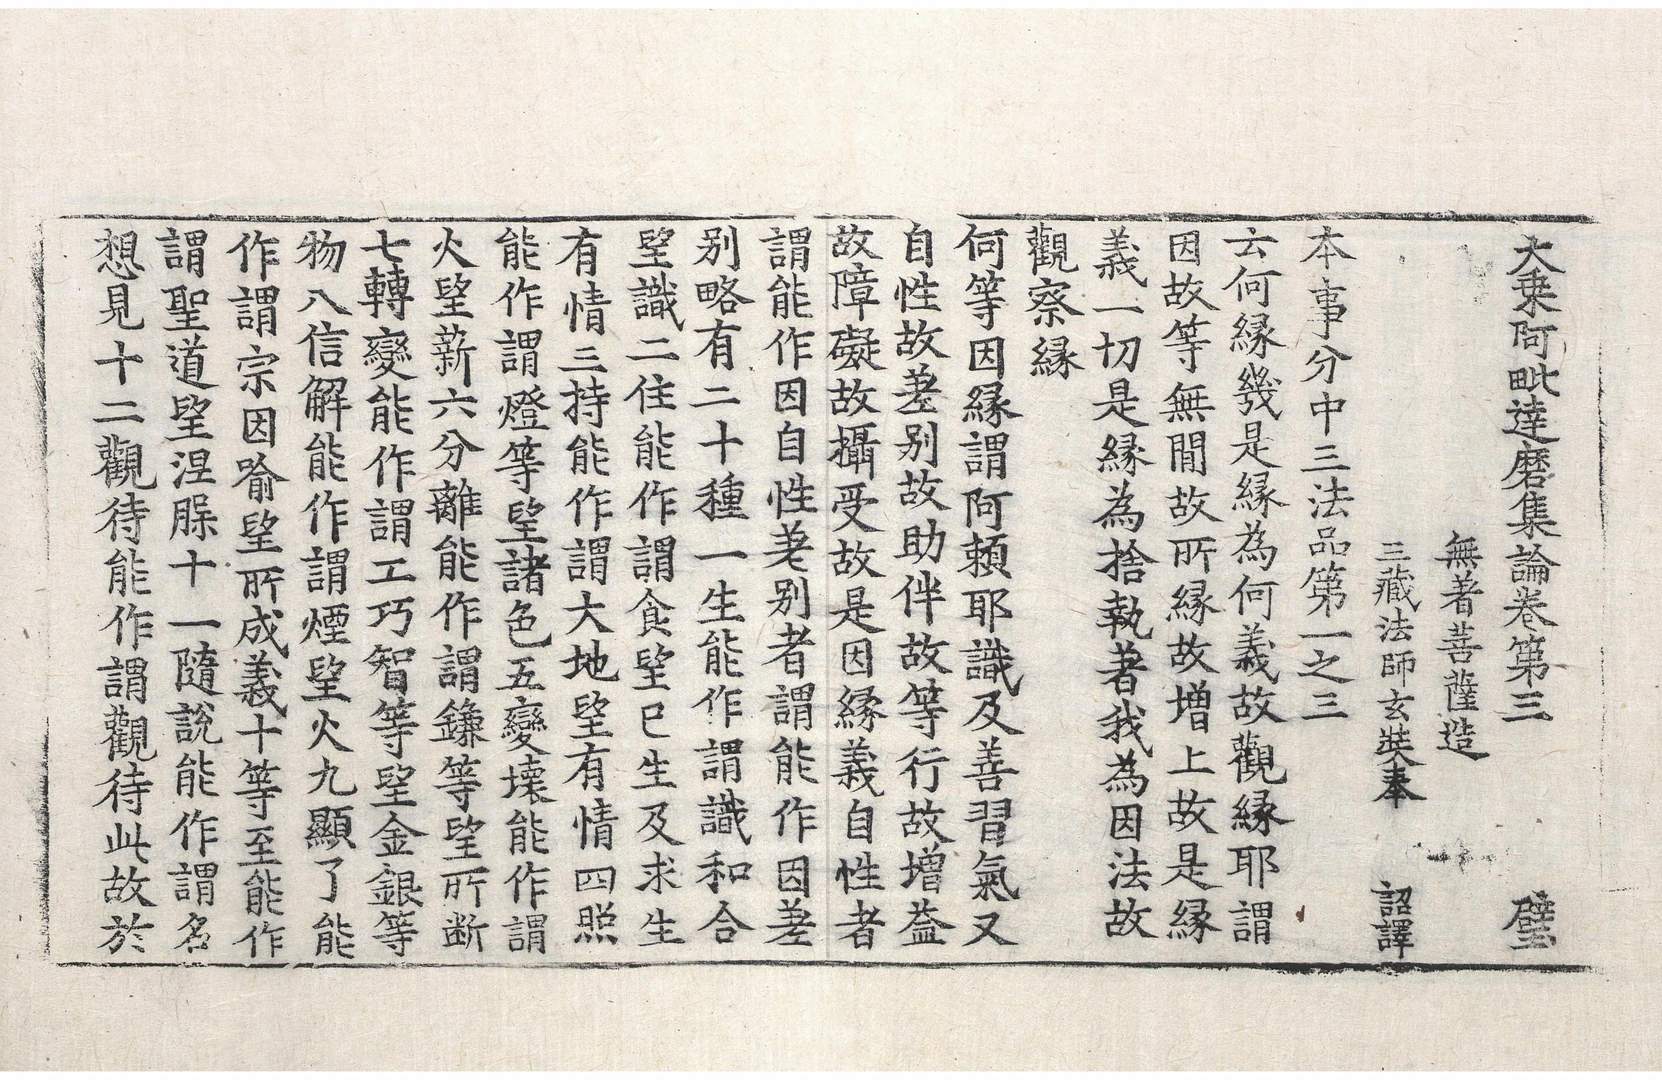 大乗阿毗達磨集論卷第三　璧
無著菩薩造
三藏法師玄奘奉　詔譯
本事分中三法品第一之三
云何縁幾是縁為何義故觀縁耶謂
因故等無間故所縁故増上故是縁
義一切是縁為捨執著我為因法故
觀察縁
何等因縁謂阿頼耶識及善習氣又
自性故差別故助伴故等行故增益
故障礙故攝受故是因縁義自性者
謂能作因自性差別者謂能作因差
別略有二十種一生能作謂識和合
望識二住能作謂食望已生及求生
有情三持能作謂大地望有情四照
能作謂燈等望諸色五變壞能作謂
火望薪六分離能作謂鎌等望所断
七轉變能作謂工巧智等望金銀等
物八信解能作謂煙望火九顯了能
作謂宗因喻望所成義十等至能作
謂聖道望涅槃十一隨說能作謂名
想見十二觀待能作謂觀待此故於